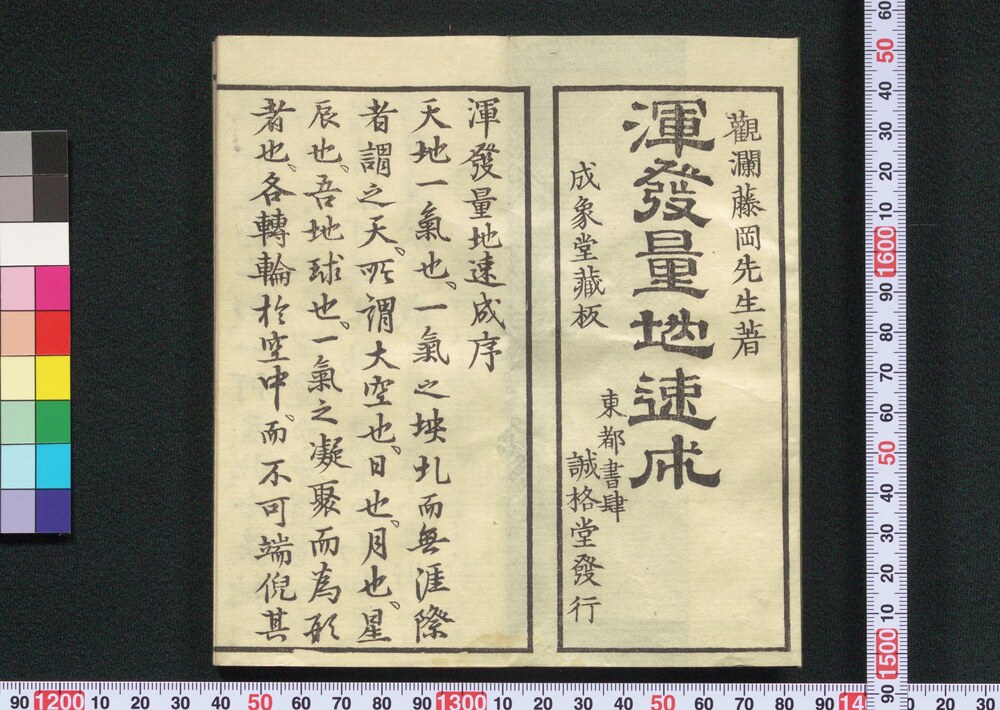 觀瀾藤岡先生著
渾發量地速成
成象堂藏板
東都書肆
誠格堂發行
渾發量地速成序
天地一氣也、一氣之坱圠而無涯際
者謂之天、所謂大空也、日也、月也、星
辰也、吾地球也、一氣之凝聚而為形
者也、各轉輪於空中、而不可端倪其
60
50
40
30
20
10
1600
90
80
70
60
50
40
30
20
10
1500
90
90
1200
10
20
30
40
50
60
70
80
90
1300
10
20
30
40
50
60
70
80
90
14
10
20
30